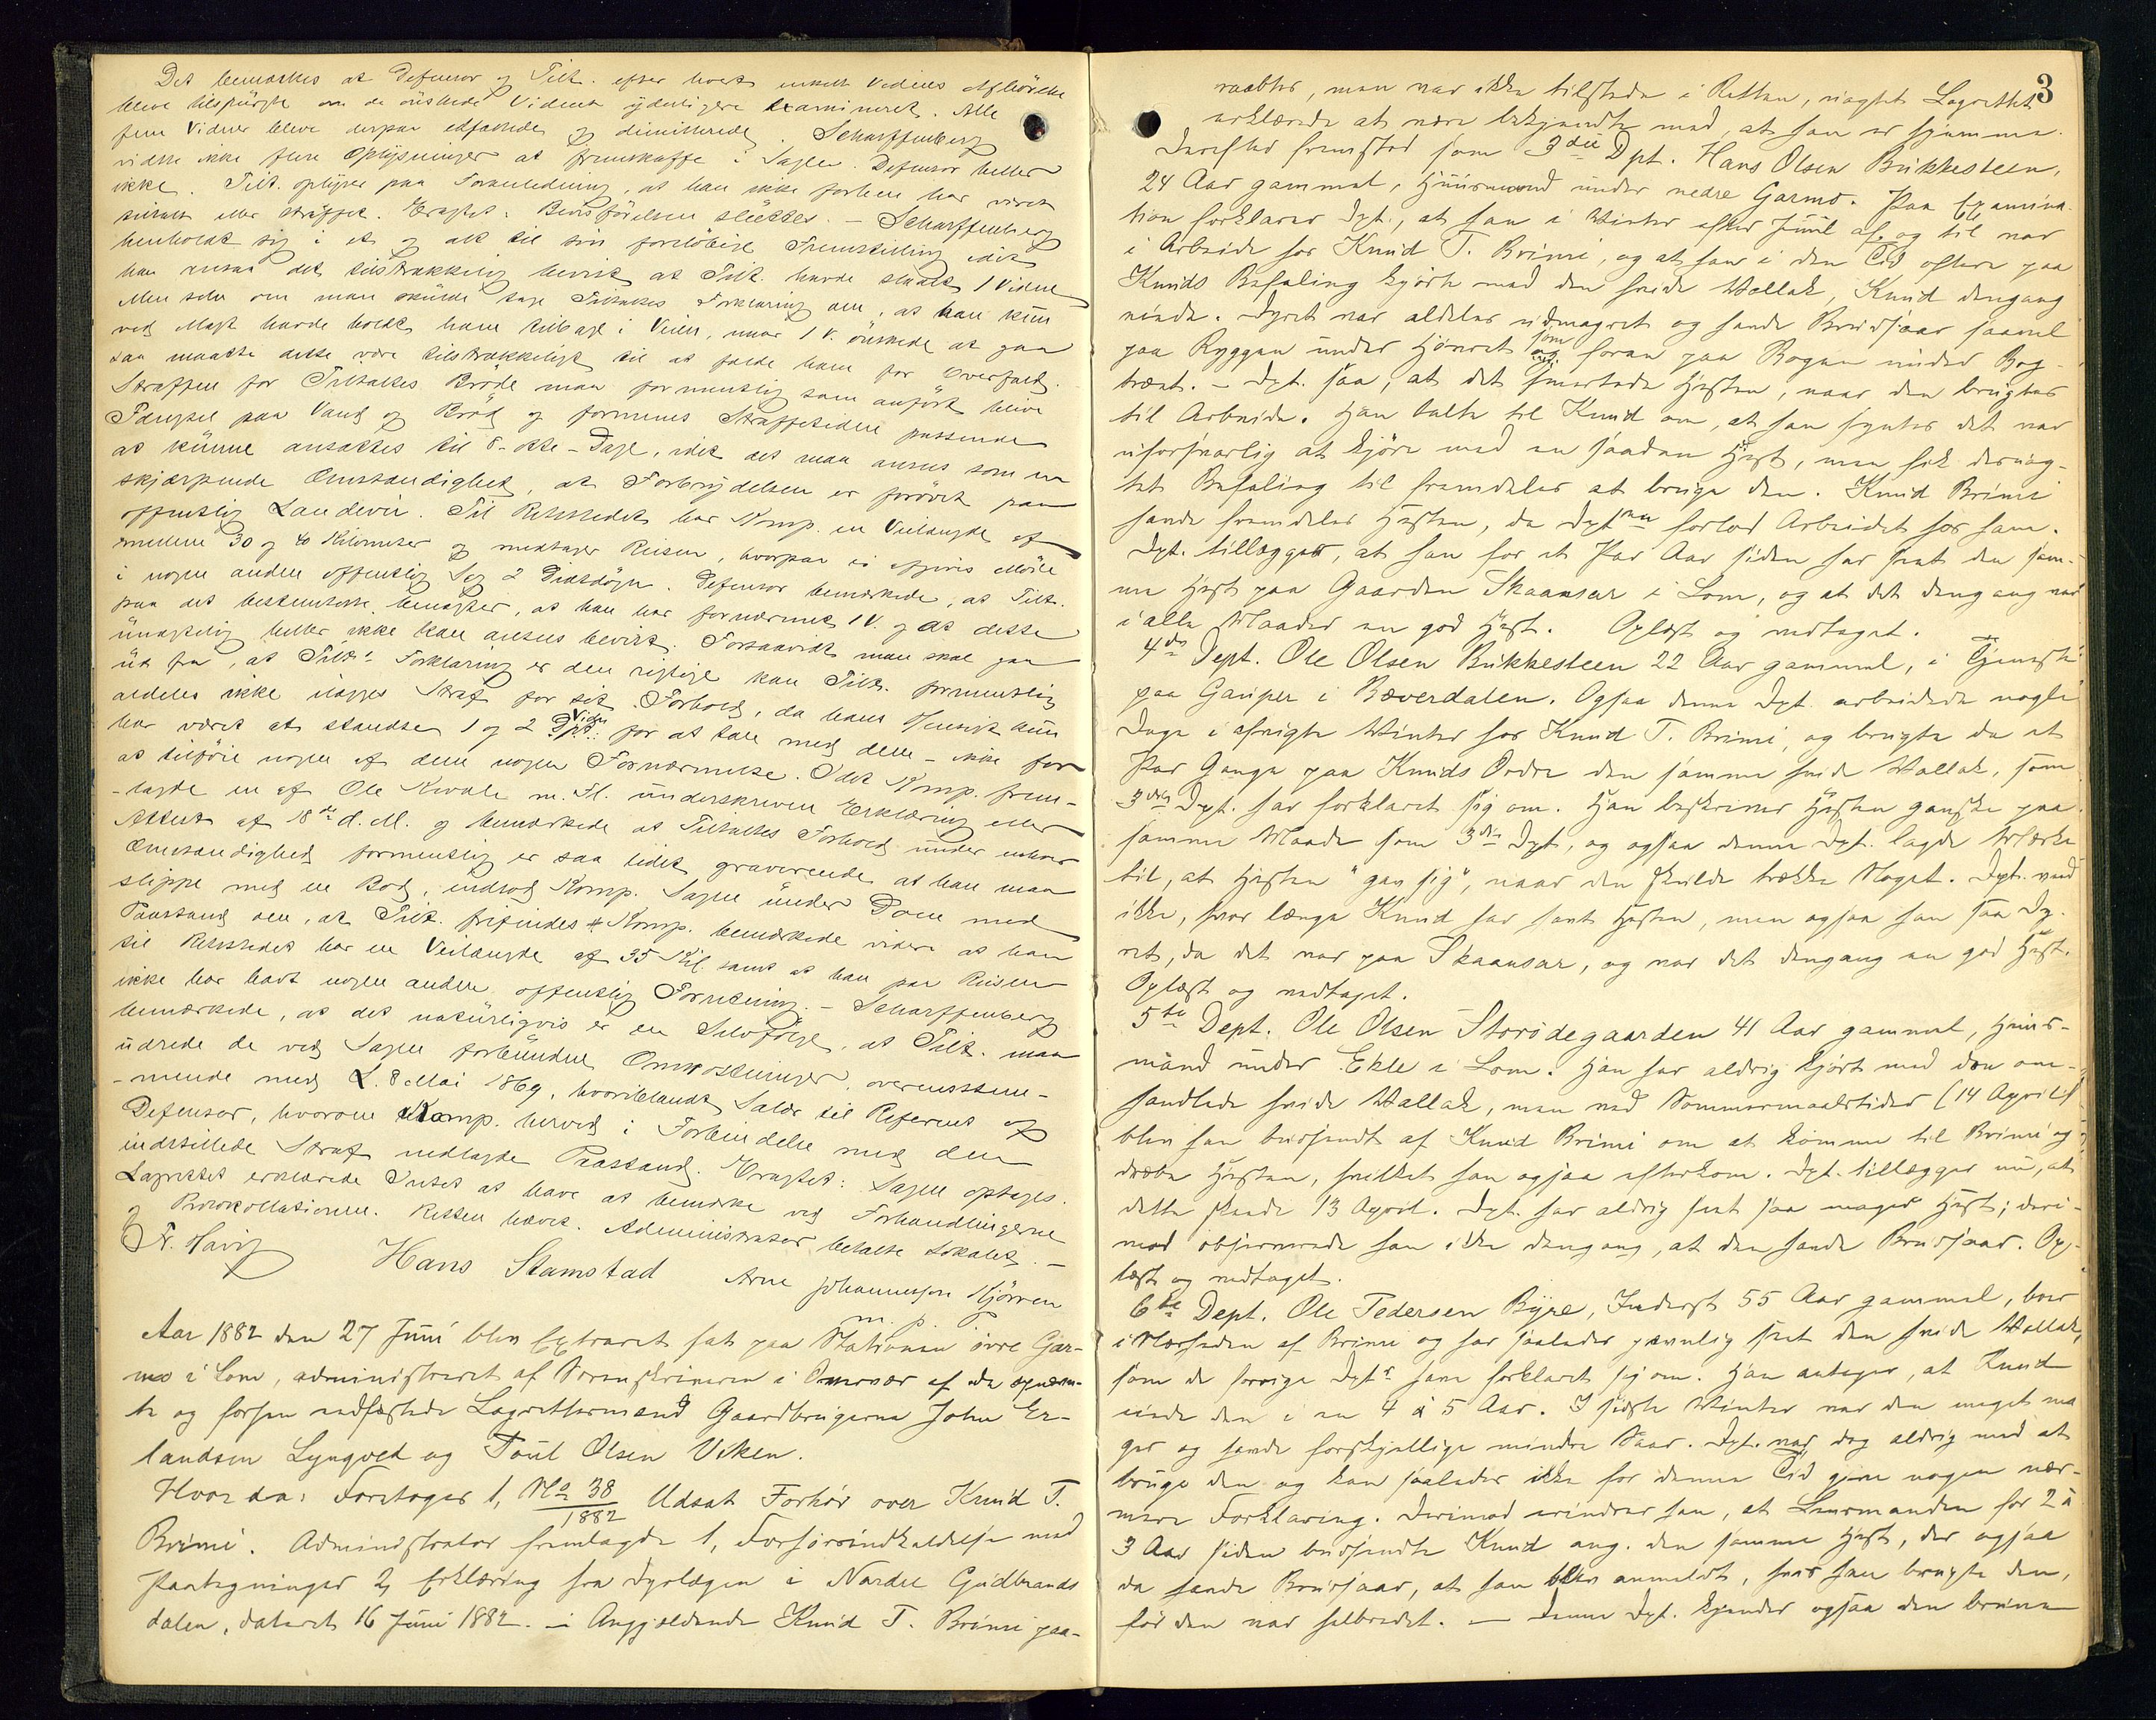 Det bemærkes at Defensor og Tilt. efter hvert enkelt Vidnes Afhörelse
bleve tilspürgte om de önskede Vidnet yderligere examineret. Alle
fem Vidner bleve derpaa edfæstede og dimitterede. Scharffenberg
vidste ikke flere Oplysninger at fremskaffe i Sagen. Defensor heller
ikke. Tilt. oplyser paa Foranledning, at han ikke forhen har været
tiltalt eller straffet. Eragtet: Bevisförelsen slüttes. - Scharffenberg
henholdt sig i et og alt til sin foreløbige Fremstilling idet
han ansaa det tilstrækkelig bevist at Tilt. havde slaaet 1 Vidne
Men selv om man skülde tage Tiltaltes Forklaring om, at han kün
ved Magt havde holdt ham tilbage i Veien, naar 1 V. önskede at gaa
saa maatte dette være tilstrækkeligt til at fælde ham for Overfald.
Straffen for Tiltaltes Bröde maa formentlig som anfört blive
Fængsel paa Vand og Bröd og formenes Straffetiden passende
at künne ansættes til 8-otte-Dage, idet det maa ansees som en
skjærpende Omstændighed, at Forbrydelsen er forövet paa
offentlig Landevei. Til Retsstedet har Komp. en Veilængde af
mellem 30 og 40 Kilometer og medtager Reisen, hvorpaa ei opgives Möde
i nogen anden offentlig Sag 2 Diætdögn. Defensor bemærkede, at Tilt.
paa det bestemteste benægter, at han har fornærmet 1 V. og at dette
ünægtelig heller ikke kan ansees bevist. Forsaavidt man skal gaa
üd fra, at Tilts. Forklaring er den rigtige kan Tilt. formentlig
aldeles ikke ilægges Straf for sit Forhold, da hans Hensigt kün
har været at standse 1 og 2 Vidne for at tale med dem - ikke for
at tilföie nogen af dem nogen Fornærmelse. Idet Komp. frem-
-lagde en af Ole Kvale m. Fl. ünderskreven Erklæring eller
Attest af 18de d. M. og bemærkede at Tiltaltes Forhold ünder enhver
Omstændighed formentlig er saa lidet graverende at han maa
slippe med en Bod, indlod Komp. Sagen ünder Dom med
Paastand om, at Tilt. frifindes # Komp. bemærkede videre at han
til Retsstedet har en Veilængde af 35 Kil. samt at han paa Reisen
ikke har havt nogen anden offentlig Forretning. - Scharffenberg
bemærkede, at det natürligvis er en Selvfölge, at Tilt. maa
üdrede de ved Sagen forbündne Omkostninger, overensstem-
-mende med L. 8 Mai 1869, hvoriblandt Salær til Referent og
Defensor, hvorom Komp. herved i Forbindelse med den
indstillede Straf nedlagde Paastand. Eragtet: Sagen optages.
Lagrettet erklærede Intet at have at bemærke ved Forhandlingerne
og Protokollationen. Retten hævet. Administrator betalte Lokalet. -
Hans Stamstad Arne Johannessen Kjörren
m. p. P
Aar 1882 den 27 Juni blev Extraret sat paa Stationen övre Gar-
mo i Lom, administreret af Sorenskriveren i Overvær af de opnævn-
te og forhen edfæstede Lagrettemænd Gaardbrugerne John Er-
landsen Lyngved og Poul Olsen Viken.
Hvor da: Foretoges 1, No 38/1882 Udsat Forhör over Knud T.
Brimi. Administrator fremlagde 1, Forhörsindkaldelse med
Paategninger 2, Erklæring fra Dyrlægen i Nordre Gudbrands
dalen, dateret 16 Juni 1882. - Angjældende Knud T. Brimi paa-
3
raabtes, men var ikke tilstede i Retten, uagtet Lagrettet
erklærede at være bekjendte med, at han er hjemme.
Derefter fremstod som 3die Dpt. Hans Olsen Bukkesteen,
24 Aar gammel, Huusmand under nedre Garmo. Paa Examina-
tion forklarer Dpt., at han i Vinter efter Juul af og til var
i Arbeide hos Knud T. Brimi, og at han i den Tid oftere paa
Knuds Befaling kjörte med den hvide Vallak, Knud dengang
eiede. Dyret var aldeles udmagret og havde Brudsaar saavel
paa Ryggen under Hönret som foran paa Bogen under Bog-
træet. - Dpt. saa, at det smertede Hesten, naar den brugtes
til Arbeide. Han talte til Knud om, at han syntes det var
uforsvarlig at kjöre med en saadan Hest, men fik deruag-
tet Befaling til fremdeles at bruge den. Knud Brimi
havde fremdeles Hesten, da Dpten forlod Arbeidet hos ham.
Dpt. tillægger, at han for et Par Aar siden har seet den sam-
me Hest paa Gaarden Skaansar i Lom, og at det dengang var
i alle Maader en god Hest. Oplæst og vedtaget.
4de Dept. Ole Olsen Bukkesteen 22 Aar gammel, i Tjeneste
paa Gaupar i Bæverdalen. Ogsaa denne Dpt. arbeidede nogle
Dage i afvigte Vinter hos Knud T. Brimi, og brugte da et
Par Gange paa Knuds Ordre den samme hvide Vallak, som
3die Dpt. har forklaret sig om. Han beskriver Hesten ganske paa
samme Maade som 3die Dpt., og ogsaa denne Dpt. lagde Mærke
til, at Hesten "gav sig", naar den skulde trække Noget. Dpt. ved
ikke, hvor længe Knud har havt Hesten, men ogsaa han saa Dy-
ret, da det var paa Skaansar, og var det dengang en god Hest.
Oplæst og vedtaget.
5te Dept. Ole Olsen Storödegaarden 41 Aar gammel, Huus-
mand under Ekle i Lom. Han har aldrig kjört med den om-
handlede hvide Vallak, men ved Sommermaalstider (14 April)
blev han budsendt af Knud Brimi om at komme til Brimi og
dræbe Hesten, hvilket han ogsaa efterkom. Dpt. tillægger nu, at
dette skede 13 April. Dpt. har aldrig seet saa mager Hest; deri-
mod observerede han ikke dengang, at den havde Brudsaar. Op-
læst og vedtaget.
6te Dept. Ole Pedersen Byre, Inderst 55 Aar gammel, boer
i Nærheden af Brimi og har saaledes jævnlig seet den hvide Vallak,
som de forrige Dptr have forklaret sig om. Han antager, at Knud
eiede den i en 4 à 5 Aar. I sidste Vinter var den meget ma
ger og havde forskjellige mindre Saar. Dpt. var dog aldrig med at
bruge den og kan saaledes ikke for denne Tid give nogen nær-
mere Forklaring. Derimod erindrer han, at Lensmanden for 2 à
3 Aar siden budsendte Knud ang. den samme Hest, der ogsaa
da havde Brudsaar, at han blev anmeldt, hvis han brugte den,
för den var helbredet. - Denne Dpt. kjender ogsaa den brune